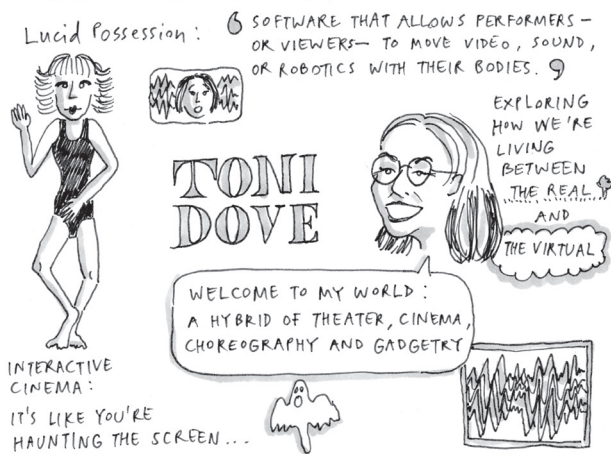 Lucid Possession:
SOFTWARE THAT ALLOWS PERFORMERS –
OR VIEWERS – TO MOVE VIDEO, SOUND,
OR ROBOTICS WITH THEIR BODIES.
EXPLORING
HOW WE'RE
LIVING
BETWEEN
THE REAL
AND
THE VIRTUAL
TONI
DOVE
WELCOME TO MY WORLD:
A HYBRID OF THEATER, CINEMA,
CHOREOGRAPHY AND GADGETRY
INTERACTIVE
CINEMA:
IT'S LIKE YOU'RE
HAUNTING THE SCREEN...